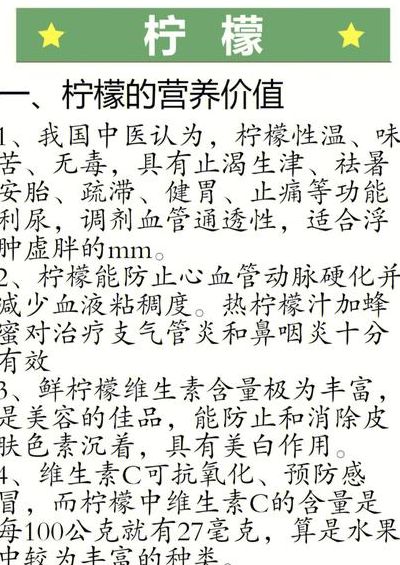 柠檬
一、柠檬的营养价值
1、我国中医认为，柠檬性温、味
苦、无毒，具有止渴生津、祛暑
安胎、疏滞、健胃、止痛等功能
利尿，调剂血管通透性，适合浮
肿虚胖的mm。
2、柠檬能防止心血管动脉硬化并
减少血液粘稠度。热柠檬汁加蜂
蜜对治疗支气管炎和鼻咽炎十分
有效
3、鲜柠檬维生素含量极为丰富，
是美容的佳品，能防止和消除皮
肤色素沉着，具有美白作用。
4、维生素C可抗氧化、预防感
冒，而柠檬中维生素C的含量是
每100公克就有27毫克，算是水果
中较为丰富的种类。